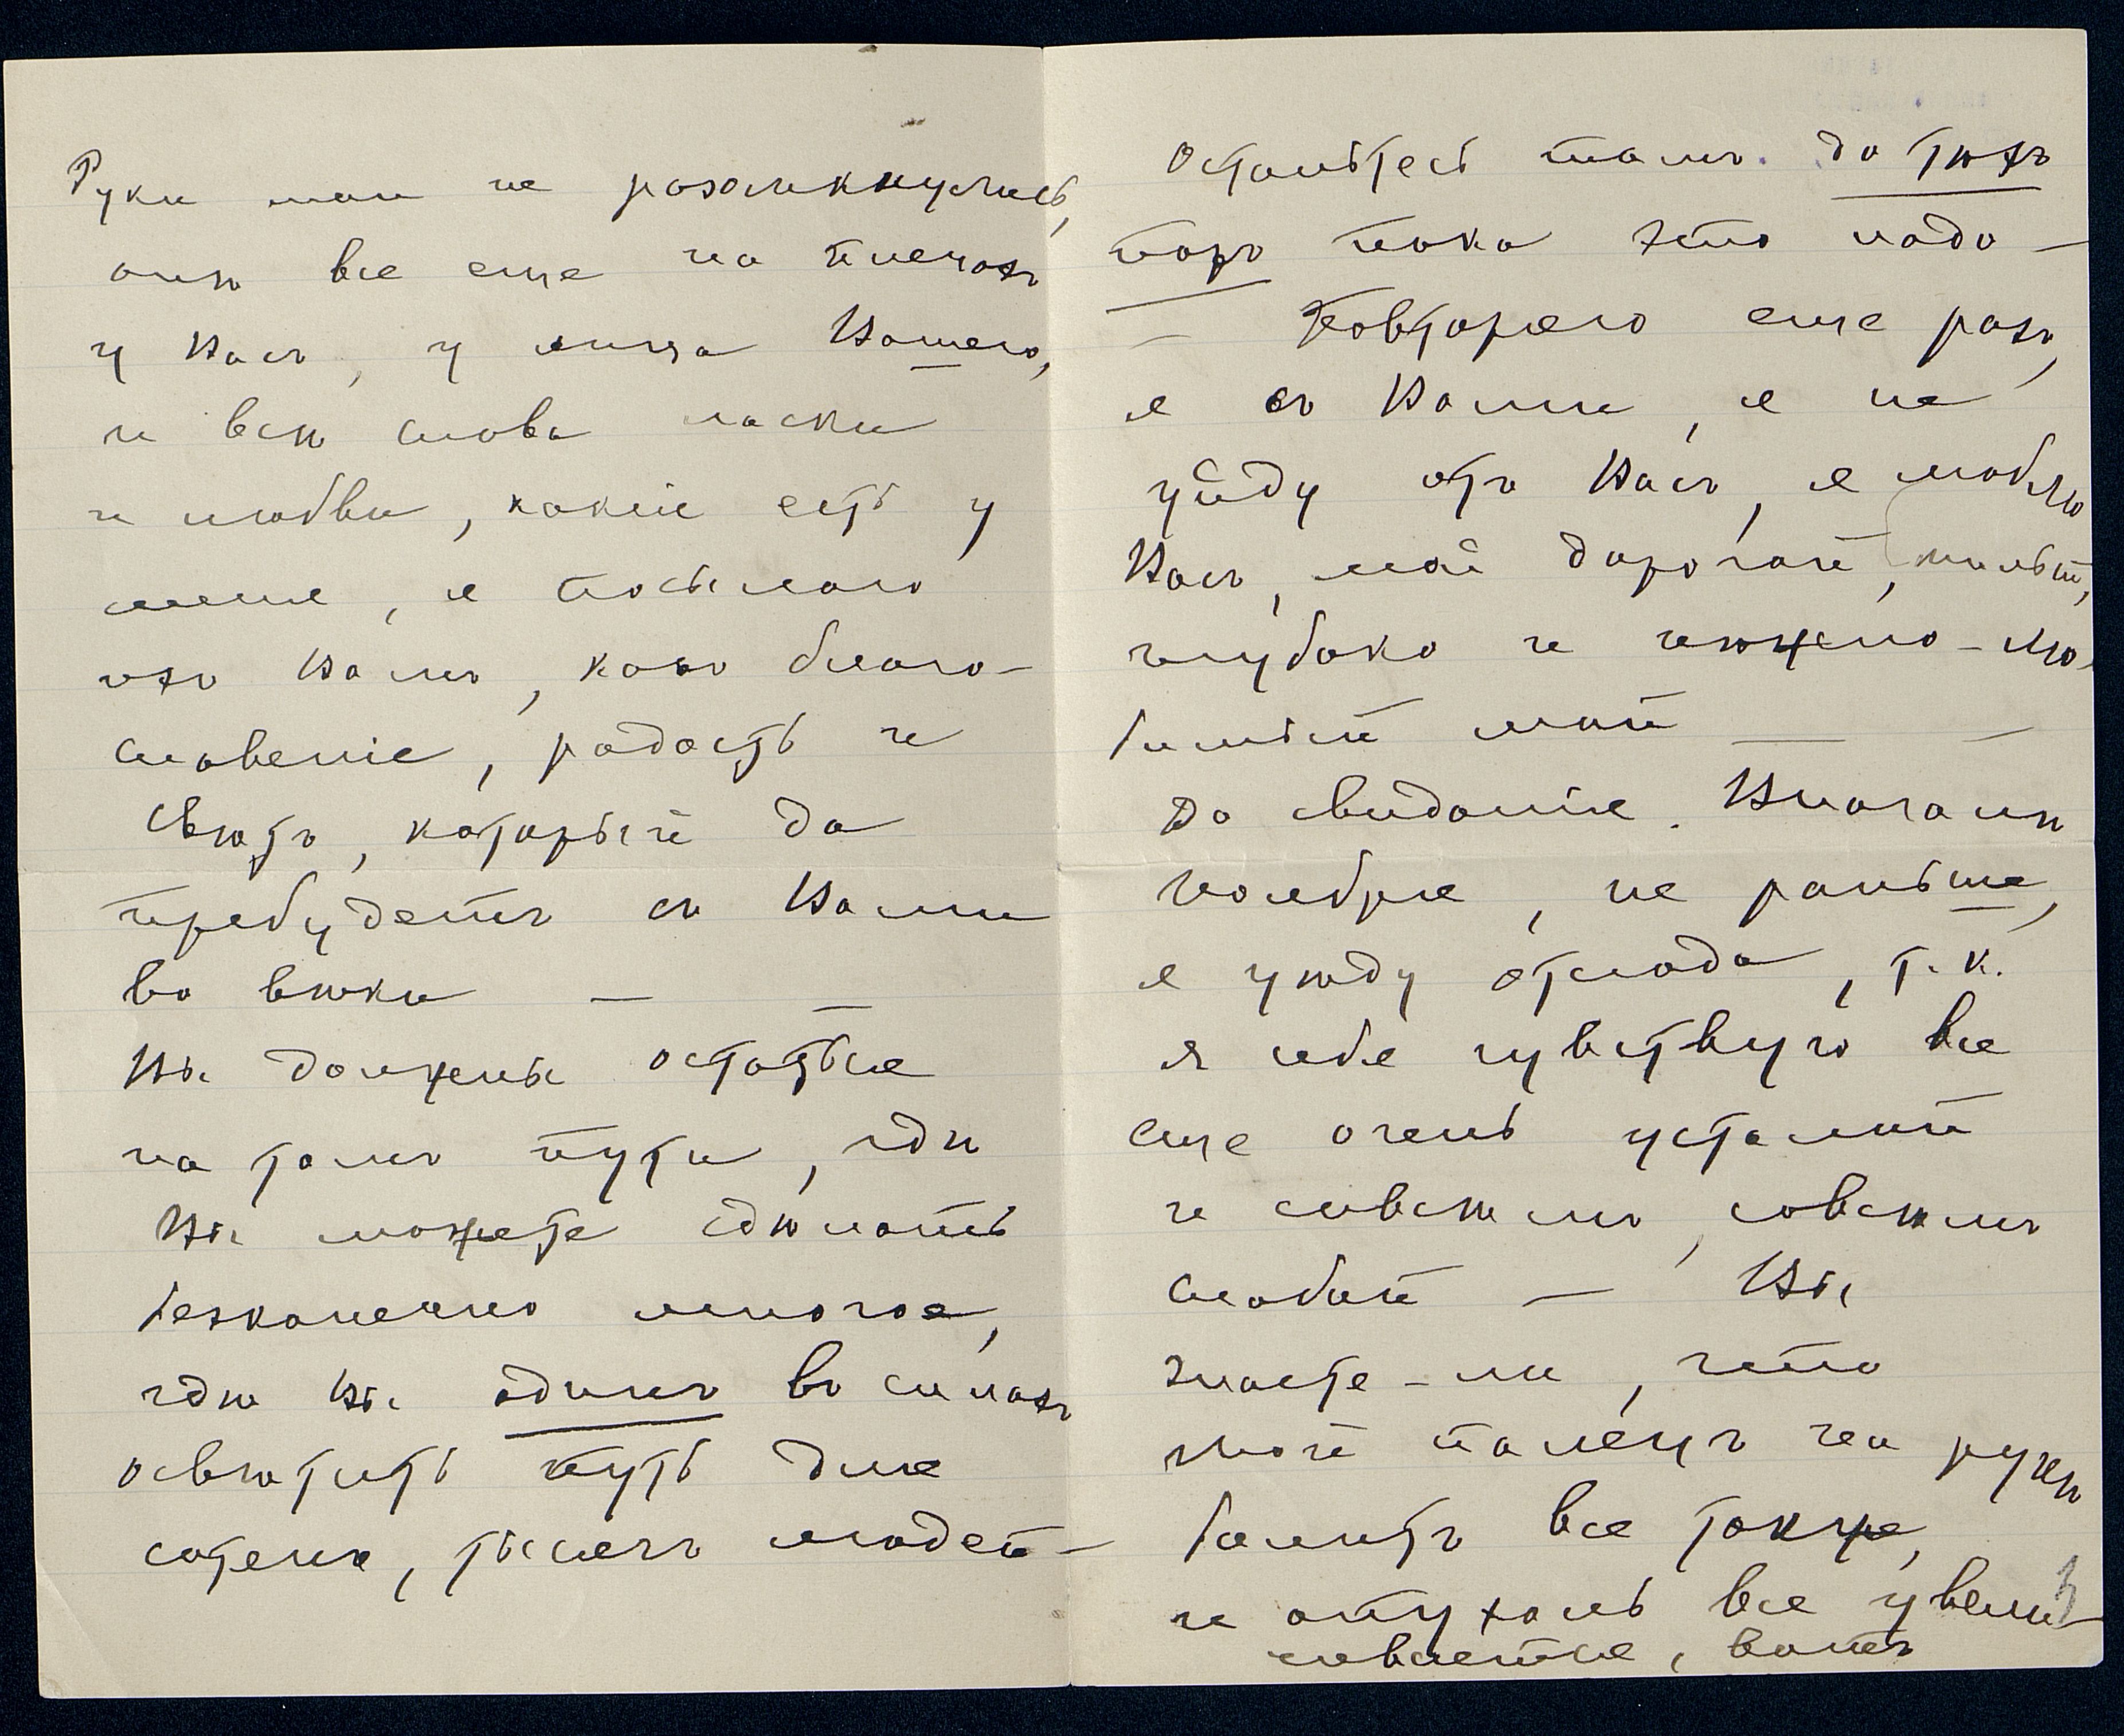 Руки мои не разомкнулись,
онѣ все еще на плечахъ
у Васъ, у лица Вашего,
и всѣ слова ласки
и любви, какія есть у
меня, я посылаю
ихъ Вамъ, какъ благо-
словеніе, радость и
свѣтъ, который да
пребудетъ съ Вами
во вѣки — —
Вы должны остаться
на томъ пути, гдѣ
Вы можете сдѣлать
безконечно многое,
гдѣ Вы одинъ въ силахъ
освѣтить путь для
сотенъ, тысячъ людей —
Останьтесь тамъ до тѣхъ
поръ пока это надо —
— Повторяю еще разъ,
я съ Вами, я не
уйду отъ Васъ, я люблю
Васъ, мой дорогой, милый,
глубоко и нѣжно-лю-
бимый мой — —
До свиданія. Вначалѣ
ноября, не раньше,
я уѣду отсюда, т.к.
я себя чувствую все
еще очень усталой
и совсѣмъ, совсѣмъ
слабой — Вы
знаете-ли, что
мой палецъ на рукѣ
болитъ все также,
и опухоль все увели-
чивается, вотъ
3